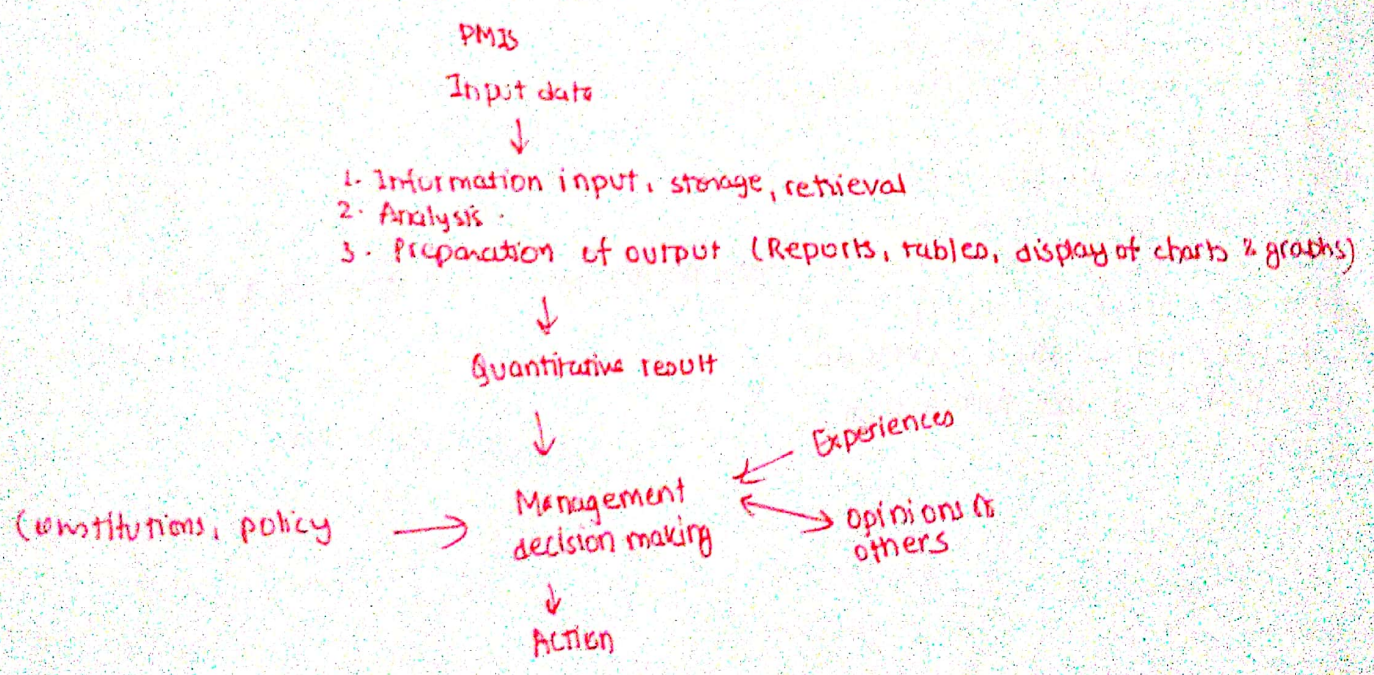 PMIS
Input data
1. Information input, storage, retrieval
2. Analysis.
3. Preparation of output (Reports, tables, display of charts & graphs)
Quantitative result
Experiences
Management
decision making
Constitutions, policy
opinions of
others
Action